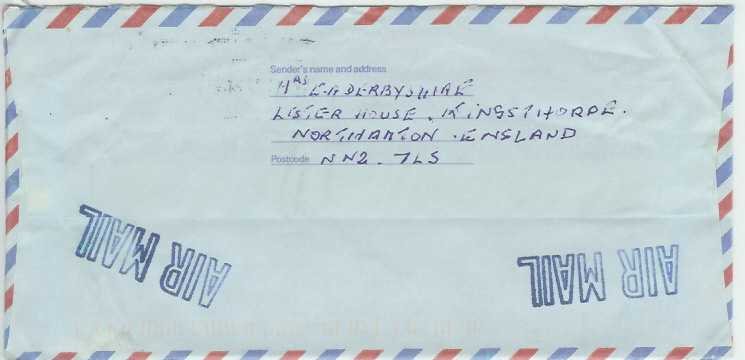 Sender's name and address
MRS E.A DERBYSHIRE
LISTER HOUSE . KINGSTHORPE.
NORTHAMTON . ENGLAND
Postcode NN2. 7LS
AIR MAIL
AIR MAIL